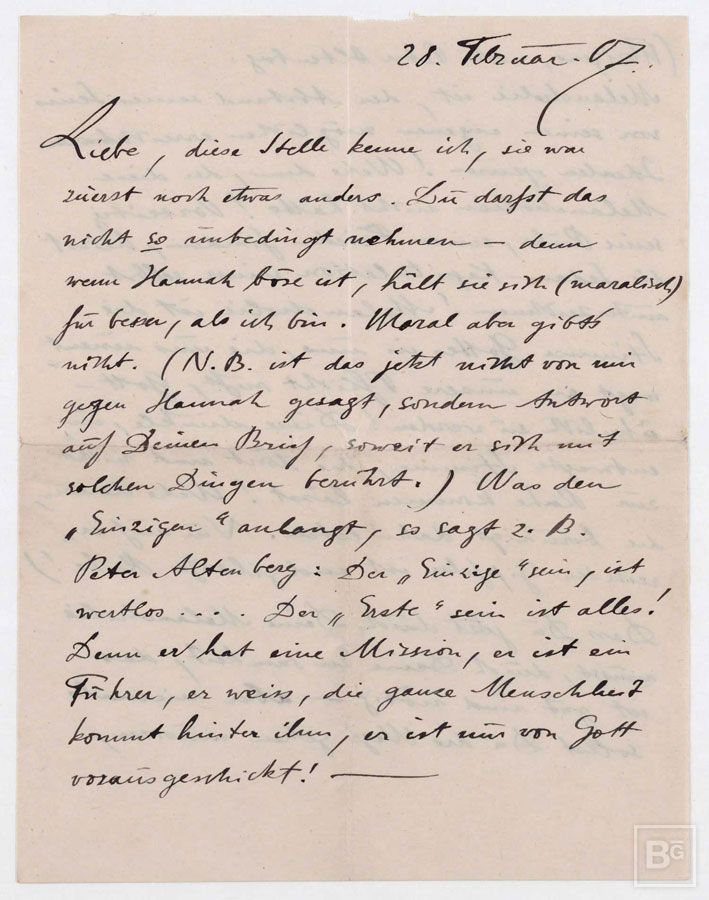 28. Februar. 07.
Liebe, diese Stelle kenne ich, sie war
zuerst noch etwas anders. Du darfst das
nicht so unbedingt nehmen – denn
wenn Hannah böse ist, hält sie sich (moralisch)
für besser, als ich bin. Moral aber gibt's
nicht. (N.B. ist das jetzt nicht von mir
gegen Hannah gesagt, sondern Antwort
auf Deinen Brief, soweit er sich mit
solchen Dingen berührt.) Was den
„Einzigen“ anlangt, so sagt z. B.
Peter Altenberg: Der „Einzige“ sein, ist
wertlos .... Der „Erste“ sein ist alles!
Denn er hat eine Mission, er ist ein
Führer, er weiss, die ganze Menschheit
kommt hinter ihm, er ist nur von Gott
vorausgeschickt! —
BG